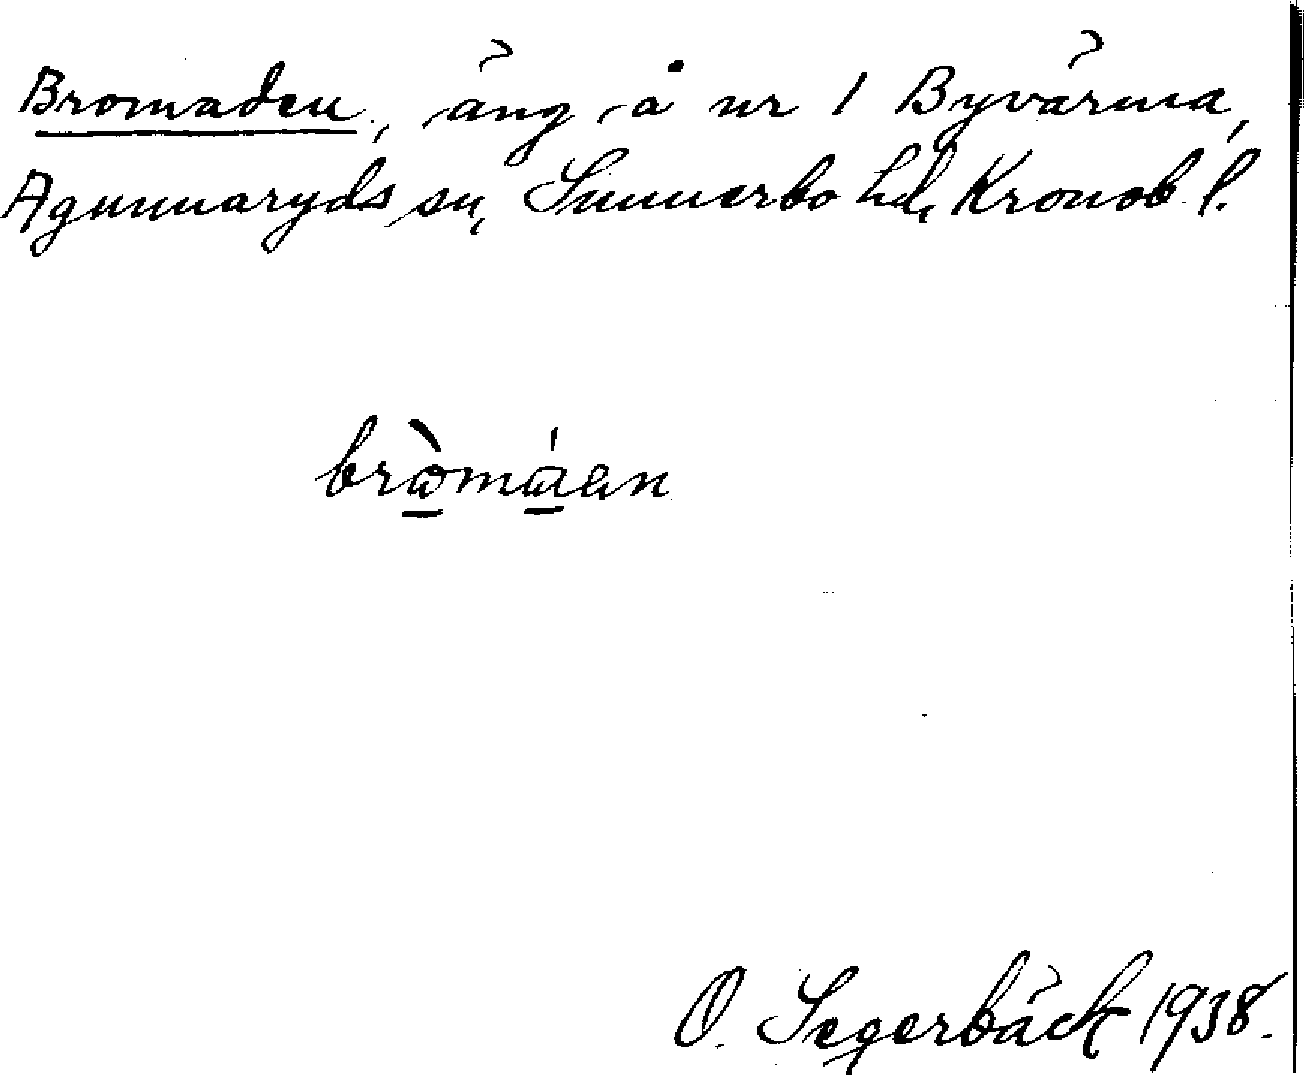 Bromaden, äng å nr 1 Byvärma,
Agunnaryds sn, Sunnerbo hd, Kronob. l.
bròmáen
O. Segerbäck 1938.